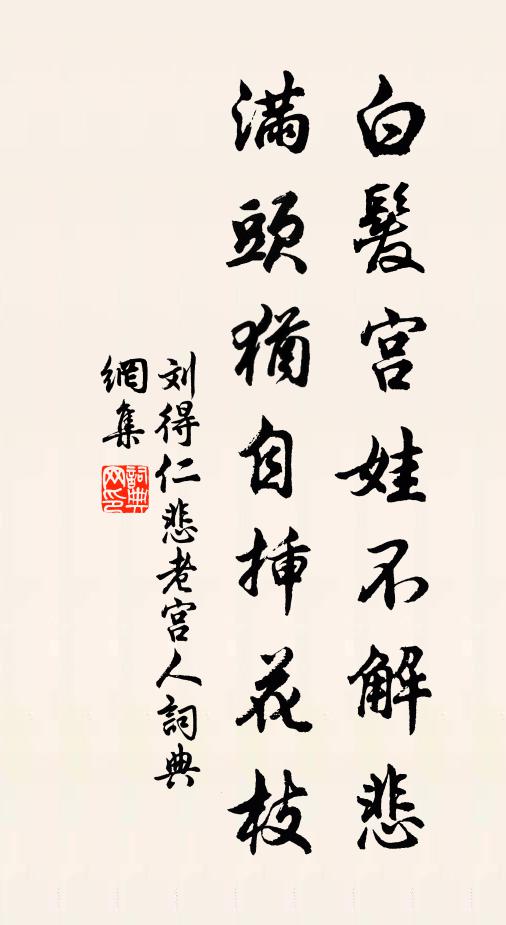 白髮宮娃不解悲
滿頭猶自插花枝
刘得仁悲老宮人詞典
網集
詞典網印